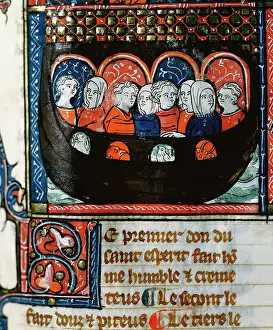 Le premier don du
saint esperit fait hō
me humble & creme
teus Le second le
fait douz & piteus Le tiers le